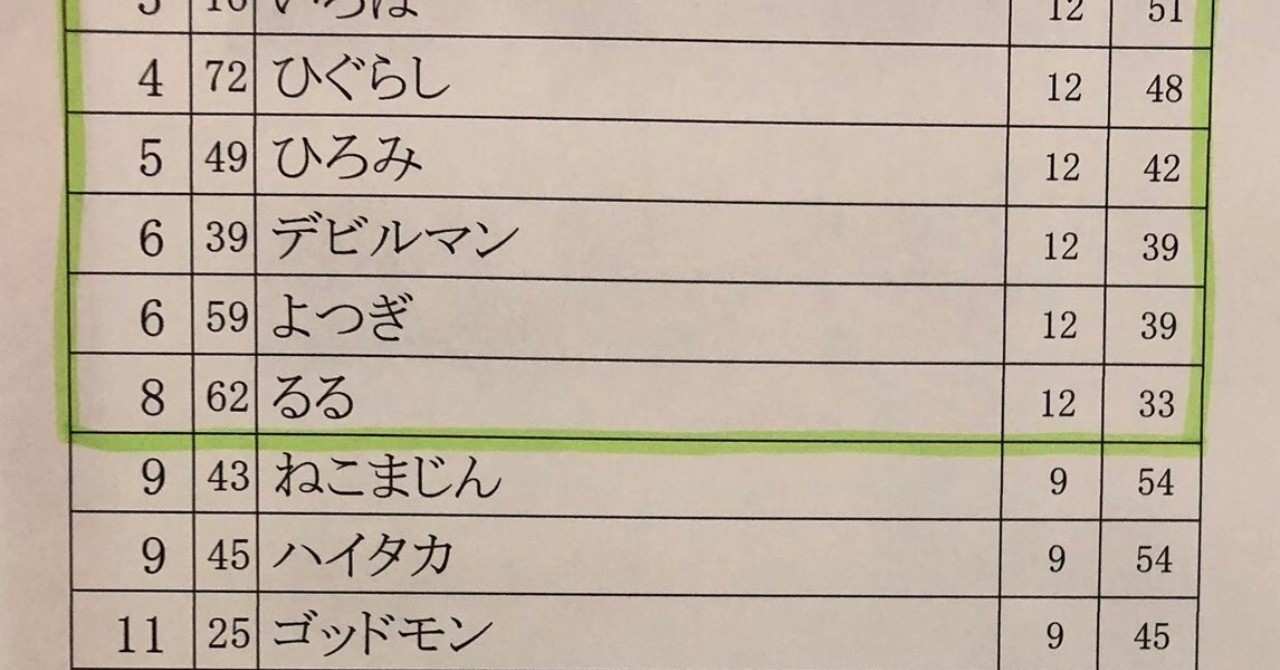 3 16 いろは 12 51
4 72 ひぐらし 12 48
5 49 ひろみ 12 42
6 39 デビルマン 12 39
6 59 よつぎ 12 39
8 62 るる 12 33
9 43 ねこまじん 9 54
9 45 ハイタカ 9 54
11 25 ゴッドモン 9 45